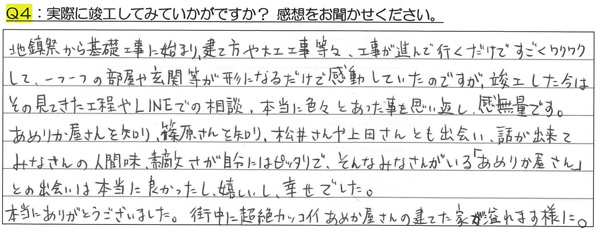 Q4：実際に竣工してみていかがですか？ 感想をお聞かせください。
地鎮祭から基礎工事に始まり、建て方や大工工事等々、工事が進んで行くだけですごくワクワク
して、一つ一つの部屋や玄関等が形になるだけで感動していたのですが、竣工した今は
その見てきた工程やLINEでの相談、本当に色々とあった事を思い返し、感無量です。
あめりか屋さんを知り、篠原さんを知り、松井さんや上田さんとも出会い、話が出来て
みなさんの人間味、素敵さが自分にはピッタリで、そんなみなさんがいる「あめりか屋さん」
との出会いは本当に良かったし、嬉しいし、幸せでした。
本当にありがとうございました。街中に超絶カッコイイあめりか屋さんの建てた家が溢れます様に。